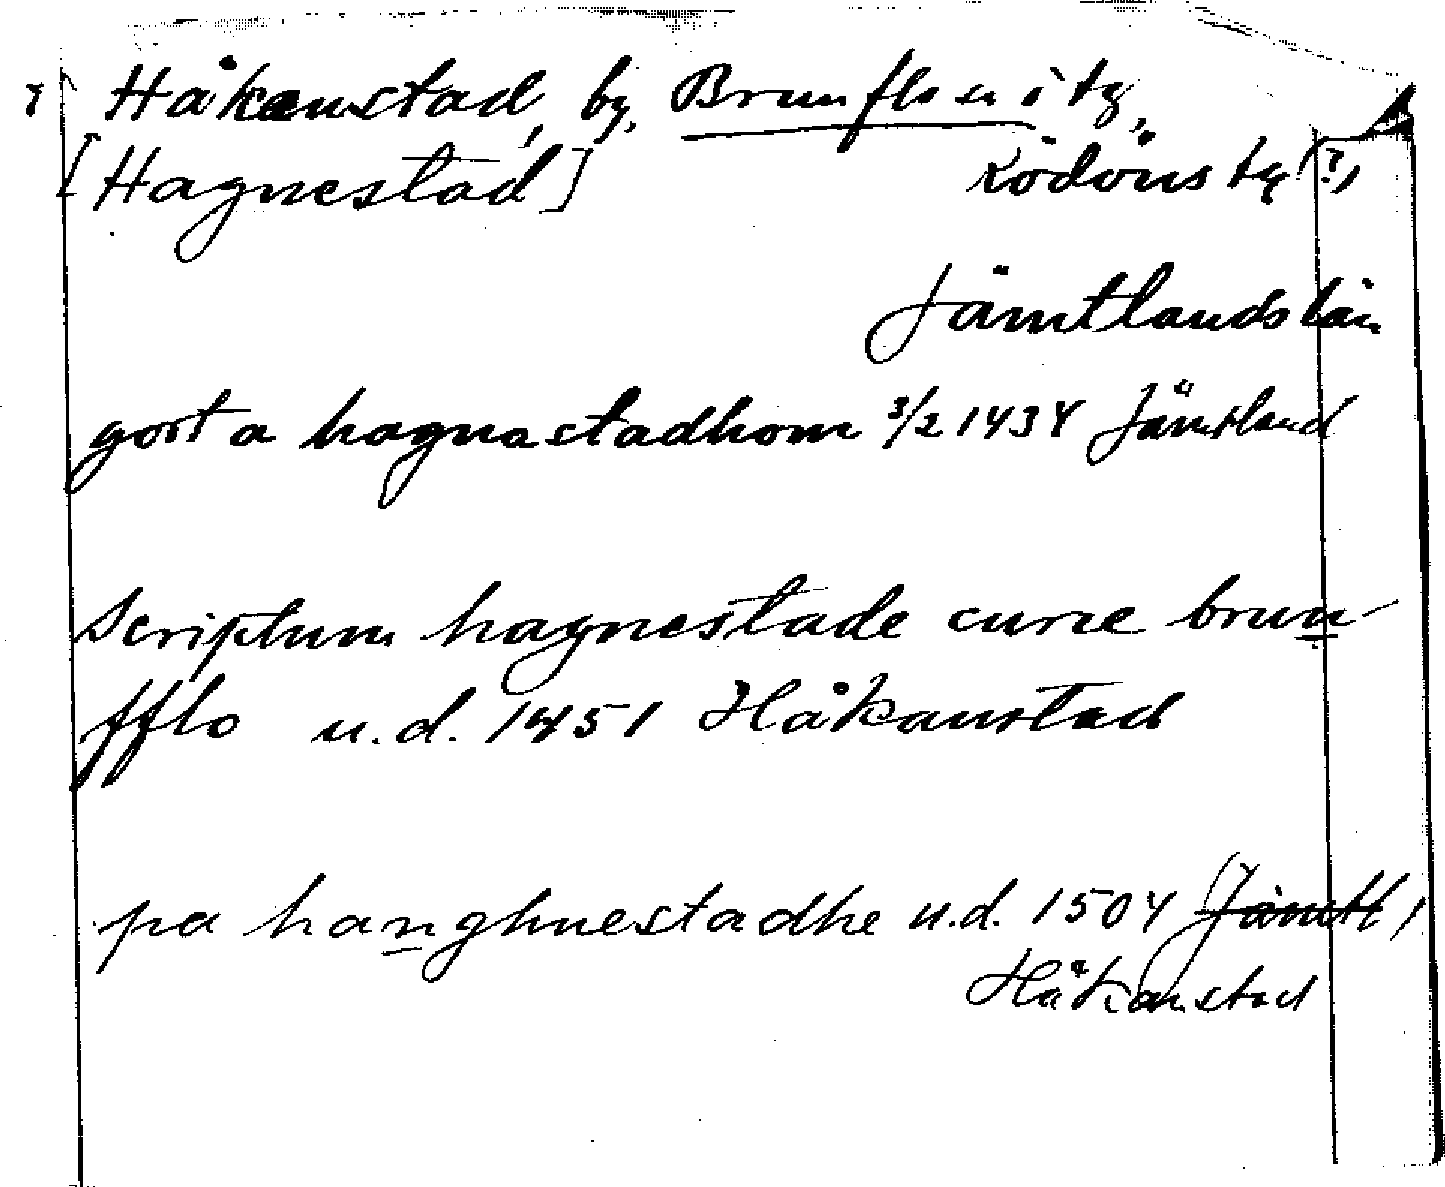 Håkanstad, by, Brunflo sn i tg,
[Hagnestad] Rödöns tg (?),
Jämtlands län
gort a hagnastadhom 3/2 1434 Jämtland
Scriptum hagnestade curie brun
fflo u.d. 1451 Håkanstad
pa hanghnestadhe u.d. 1504 Jämtl,
Håkanstad